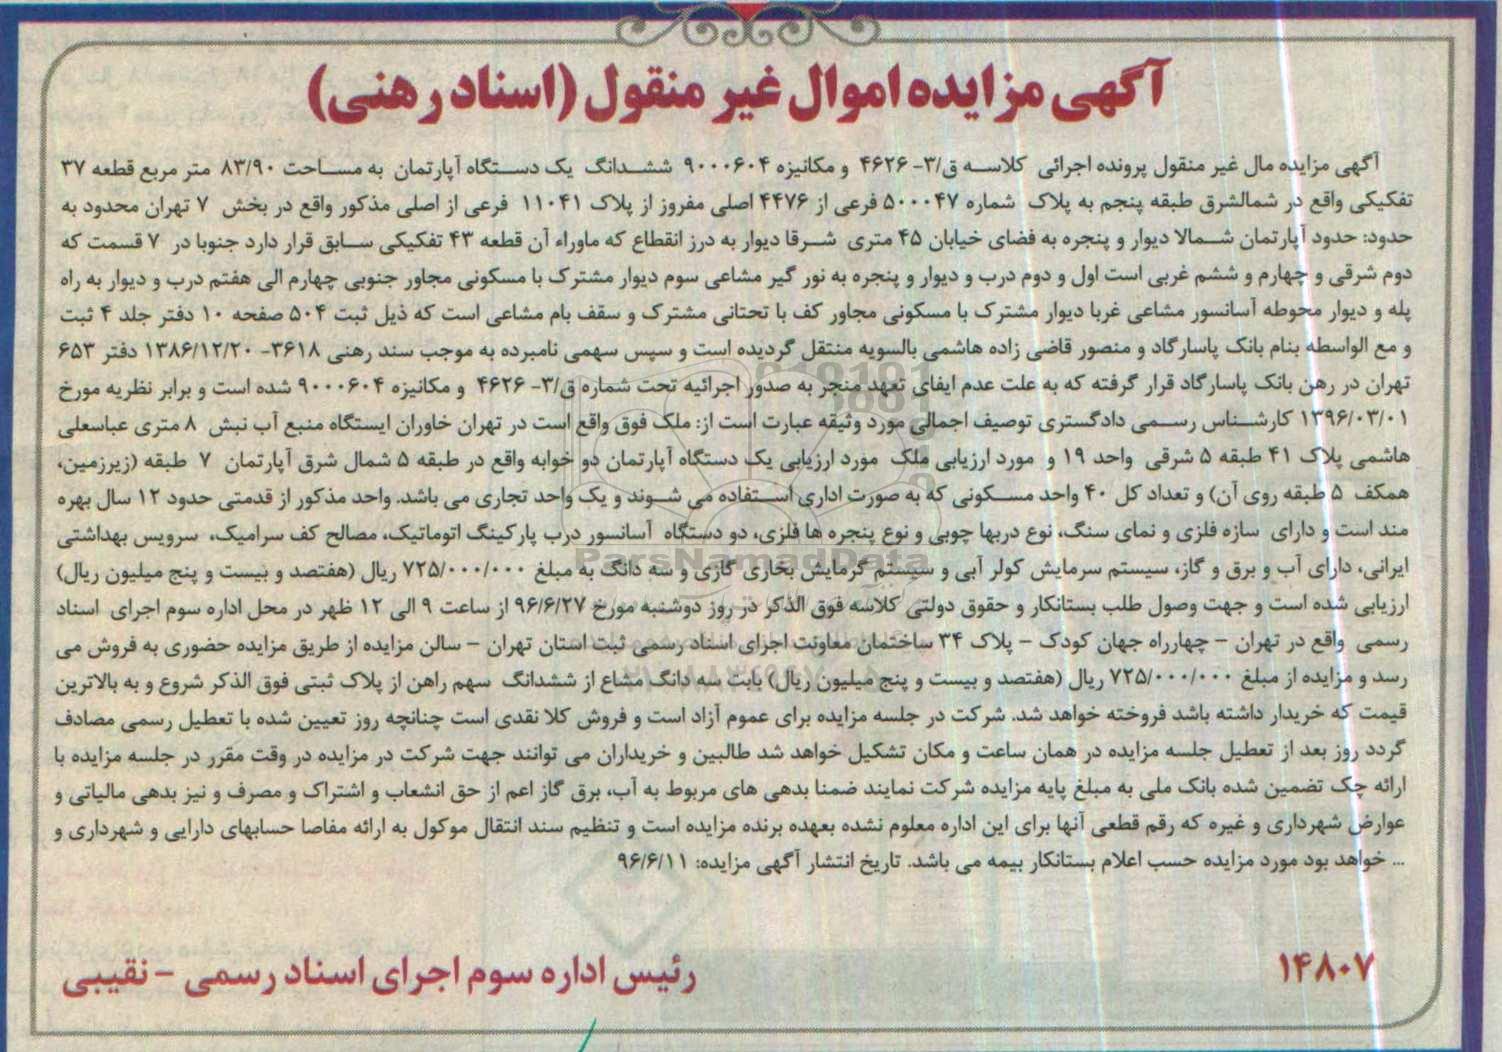 آگهی مزایده اموال غیر منقول (اسناد رهنی)
آگهی مزایده مال غیر منقول پرونده اجرائی کلاسه ق/۳- ۴۶۲۶ و مکانیزه ۹۰۰۰۶۰۴ ششدانگ یک دستگاه آپارتمان به مساحت ۸۳/۹۰ متر مربع قطعه ۳۷
تفکیکی واقع در شمالشرق طبقه پنجم به پلاک شماره ۵۰۰۰۴۷ فرعی از ۴۴۷۶ اصلی مفروز از پلاک ۱۱۰۴۱ فرعی از اصلی مذکور واقع در بخش ۷ تهران محدود به
حدود: حدود آپارتمان شمالا دیوار و پنجره به فضای خیابان ۴۵ متری شرقا دیوار به درز انقطاع که ماوراء آن قطعه ۴۳ تفکیکی سابق قرار دارد جنوبا در ۷ قسمت که
دوم شرقی و چهارم و ششم غربی است اول و دوم درب و دیوار و پنجره به نور گیر مشاعی سوم دیوار مشترک با مسکونی مجاور جنوبی چهارم الی هفتم درب و دیوار به راه
پله و دیوار محوطه آسانسور مشاعی غربا دیوار مشترک با مسکونی مجاور کف با تحتانی مشترک و سقف بام مشاعی است که ذیل ثبت ۵۰۴ صفحه ۱۰ دفتر جلد ۴ ثبت
و مع الواسطه بنام بانک پاسارگاد و منصور قاضی زاده هاشمی بالسویه منتقل گردیده است و سپس سهمی نامبرده به موجب سند رهنی ۳۶۱۸- ۱۳۸۶/۱۲/۲۰ دفتر ۶۵۳
تهران در رهن بانک پاسارگاد قرار گرفته که به علت عدم ایفای تعهد منجر به صدور اجرائیه تحت شماره ق/۳- ۴۶۲۶ و مکانیزه ۹۰۰۰۶۰۴ شده است و برابر نظریه مورخ
۱۳۹۶/۰۳/۰۱ کارشناس رسمی دادگستری توصیف اجمالی مورد وثیقه عبارت است از: ملک فوق واقع است در تهران خاوران ایستگاه منبع آب نبش ۸ متری عباسعلی
هاشمی پلاک ۴۱ طبقه ۵ شرقی واحد ۱۹ و مورد ارزیابی ملک مورد ارزیابی یک دستگاه آپارتمان دو خوابه واقع در طبقه ۵ شمال شرق آپارتمان ۷ طبقه (زیرزمین،
همکف ۵ طبقه روی آن) و تعداد کل ۴۰ واحد مسکونی که به صورت اداری استفاده می شوند و یک واحد تجاری می باشد. واحد مذکور از قدمتی حدود ۱۲ سال بهره
مند است و دارای سازه فلزی و نمای سنگ، نوع دربها چوبی و نوع پنجره ها فلزی، دو دستگاه آسانسور درب پارکینگ اتوماتیک، مصالح کف سرامیک، سرویس بهداشتی
ایرانی، دارای آب و برق و گاز، سیستم سرمایش کولر آبی و سیستم گرمایش بخاری گازی و سه دانگ به مبلغ ۷۲۵/۰۰۰/۰۰۰ ریال (هفتصد و بیست و پنج میلیون ریال)
ارزیابی شده است و جهت وصول طلب بستانکار و حقوق دولتی کلاسه فوق الذکر در روز دوشنبه مورخ ۹۶/۶/۲۷ از ساعت ۹ الی ۱۲ ظهر در محل اداره سوم اجرای اسناد
رسمی واقع در تهران - چهارراه جهان کودک - پلاک ۳۴ ساختمان معاونت اجرای اسناد رسمی ثبت استان تهران - سالن مزایده از طریق مزایده حضوری به فروش می
رسد و مزایده از مبلغ ۷۲۵/۰۰۰/۰۰۰ ریال (هفتصد و بیست و پنج میلیون ریال) بابت سه دانگ مشاع از ششدانگ سهم راهن از پلاک ثبتی فوق الذکر شروع و به بالاترین
قیمت که خریدار داشته باشد فروخته خواهد شد. شرکت در جلسه مزایده برای عموم آزاد است و فروش کلا نقدی است چنانچه روز تعیین شده با تعطیل رسمی مصادف
گردد روز بعد از تعطیل جلسه مزایده در همان ساعت و مکان تشکیل خواهد شد طالبین و خریداران می توانند جهت شرکت در مزایده در وقت مقرر در جلسه مزایده با
ارائه چک تضمین شده بانک ملی به مبلغ پایه مزایده شرکت نمایند ضمنا بدهی های مربوط به آب، برق گاز اعم از حق انشعاب و اشتراک و مصرف و نیز بدهی مالیاتی و
عوارض شهرداری و غیره که رقم قطعی آنها برای این اداره معلوم نشده بعهده برنده مزایده است و تنظیم سند انتقال موکول به ارائه مفاصا حسابهای دارایی و شهرداری و
... خواهد بود مورد مزایده حسب اعلام بستانکار بیمه می باشد. تاریخ انتشار آگهی مزایده: ۹۶/۶/۱۱
۱۴۸۰۷
رئیس اداره سوم اجرای اسناد رسمی - نقیبی
ParsNamadData